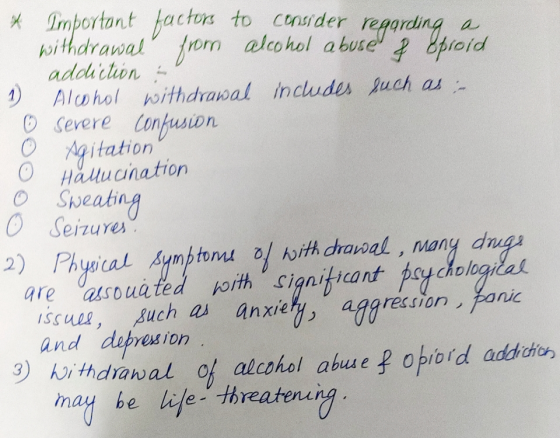 * Important factors to consider regarding a
withdrawal from alcohol abuse & opioid
addiction :-
1) Alcohol withdrawal includes such as :-
○ Severe Confusion
○ Agitation
○ Hallucination
○ Sweating
○ Seizures.
2) Physical symptoms of withdrawal, many drugs
are associated with significant psychological
issues, such as anxiety, aggression, panic
and depression.
3) Withdrawal of alcohol abuse & opioid addiction
may be life-threatening.